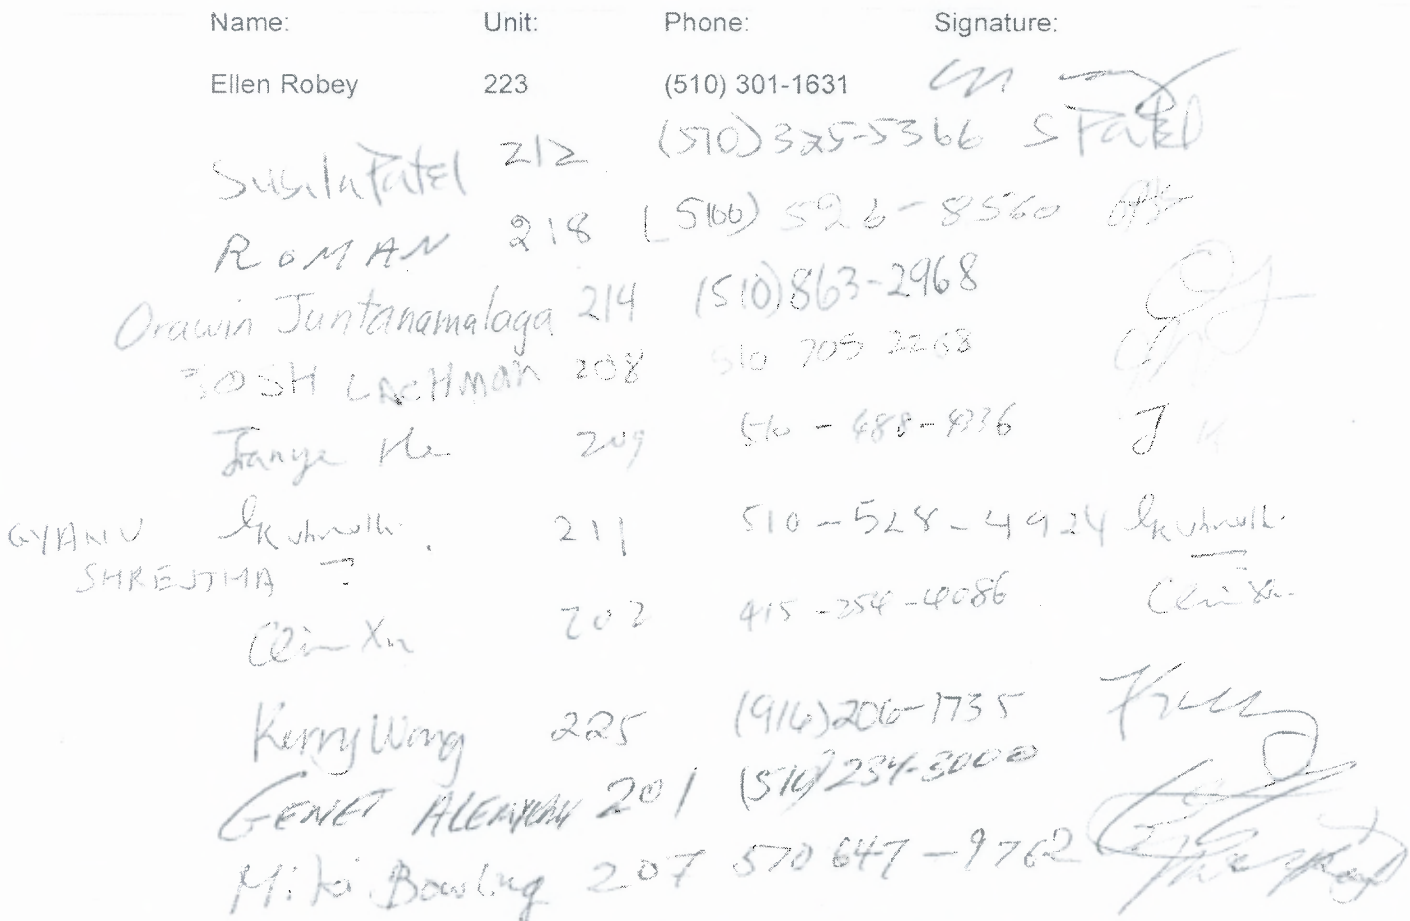 Name: Unit: Phone: Signature:
Ellen Robey 223 (510) 301-1631
Susila Patel 212 (510) 325-5366 S Patel
ROMAN 218 (5100) 526-8560
Orawin Juntanamalaga 214 (510) 863-2968
JOSH LACHMAN 208 510 705 2268
Jianye He 209 510-488-4336 J H
GYANU 211 510-528-4924
SHRESTHA
Clin Xu 202 415-254-4086 Clin Xu
Kerry Wong 225 (916) 206-1735
GENET ALEMAYEHU 201 (510) 234-3000
Bowling 207 510 647-9762